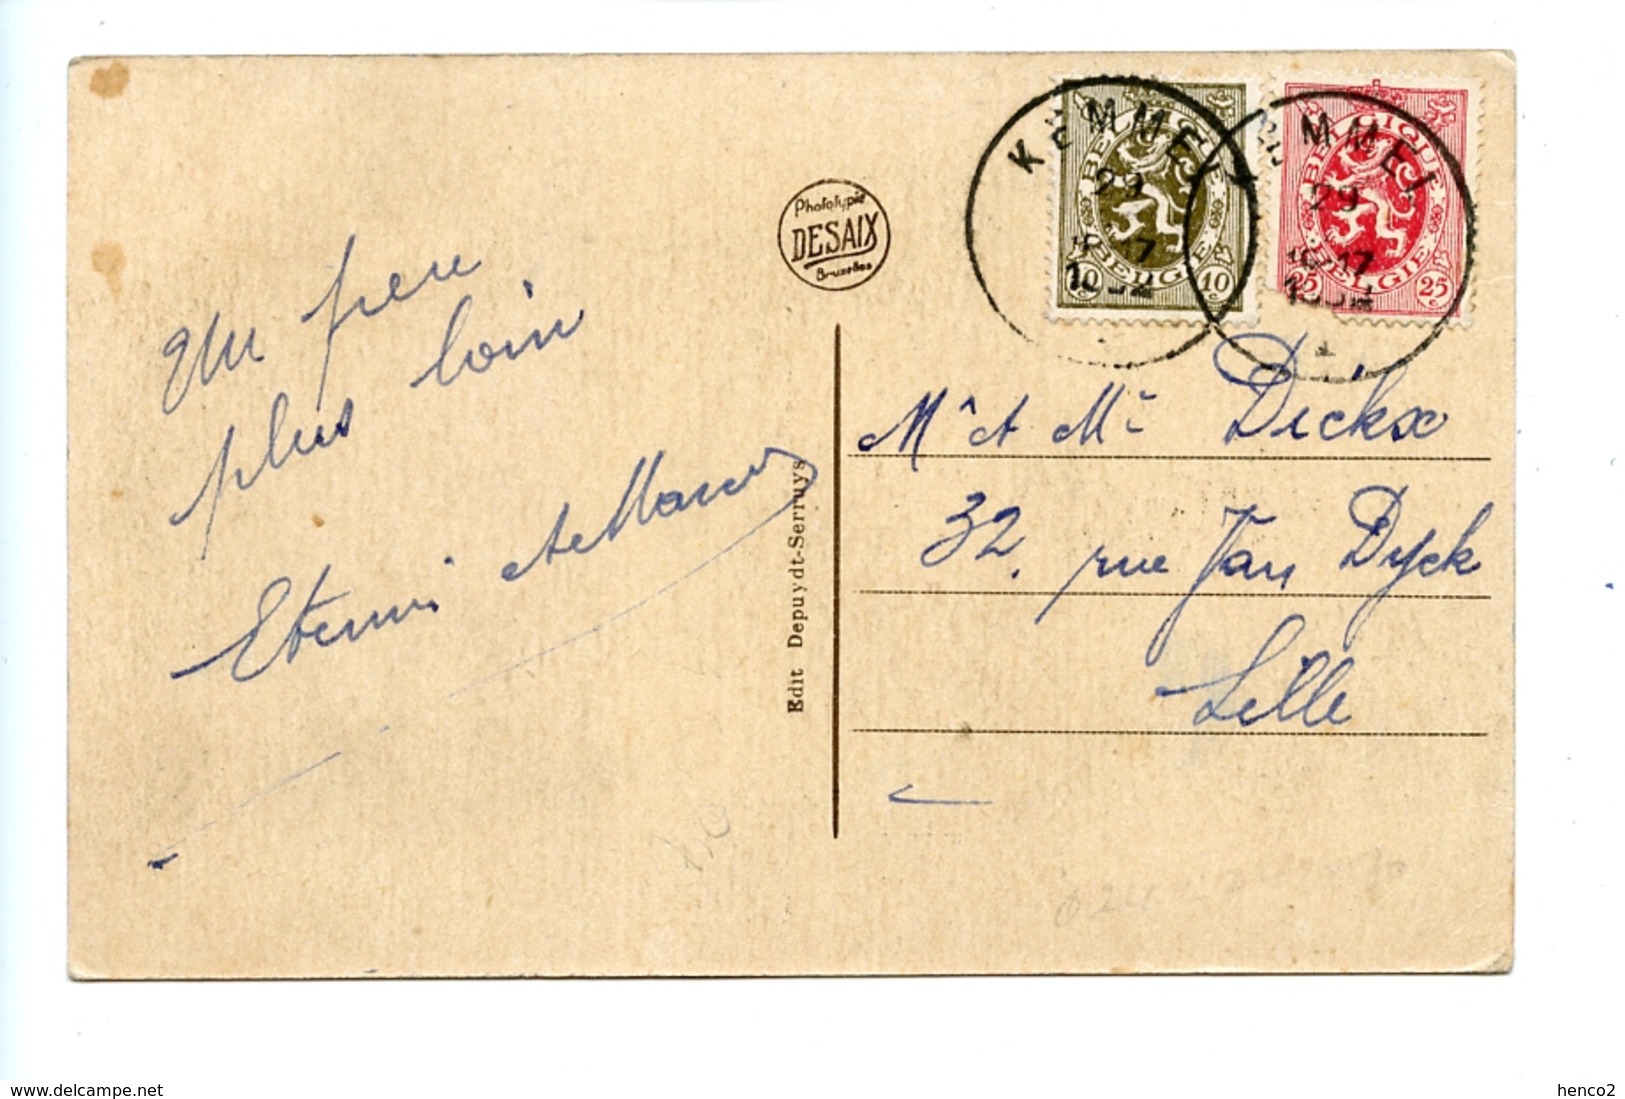 Un peu
plus loin
Phototypie
DESAIX
Bruxelles
Edit Depuydt-Serruys
KEMMEL
29
1932
BELGIQUE
BELGIE
10 10
KEMMEL
29
17
1932
BELGIQUE
BELGIE
25 25
Mr et Me Dickx
32, rue Van Dyck
Lille
www.delcampe.net
henco2